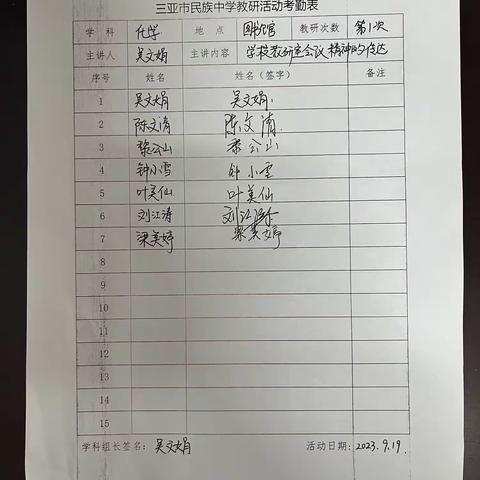 三亚市民族中学教研活动考勤表
学 科 化学 地 点 图书馆 教研次数 第1次
主讲人 吴文娟 主讲内容 学校教研室会议精神的传达
序号 姓名 姓名（签字） 备注
1 吴文娟 吴文娟
2 陈文清 陈文清
3 黎公山 黎公山
4 钟小雪 钟小雪
5 叶美仙 叶美仙
6 刘江涛 刘江涛
7 梁美婷 梁美婷
8
9
10
11
12
13
14
15
学科组长签名：吴文娟 活动日期：2023.9.19.